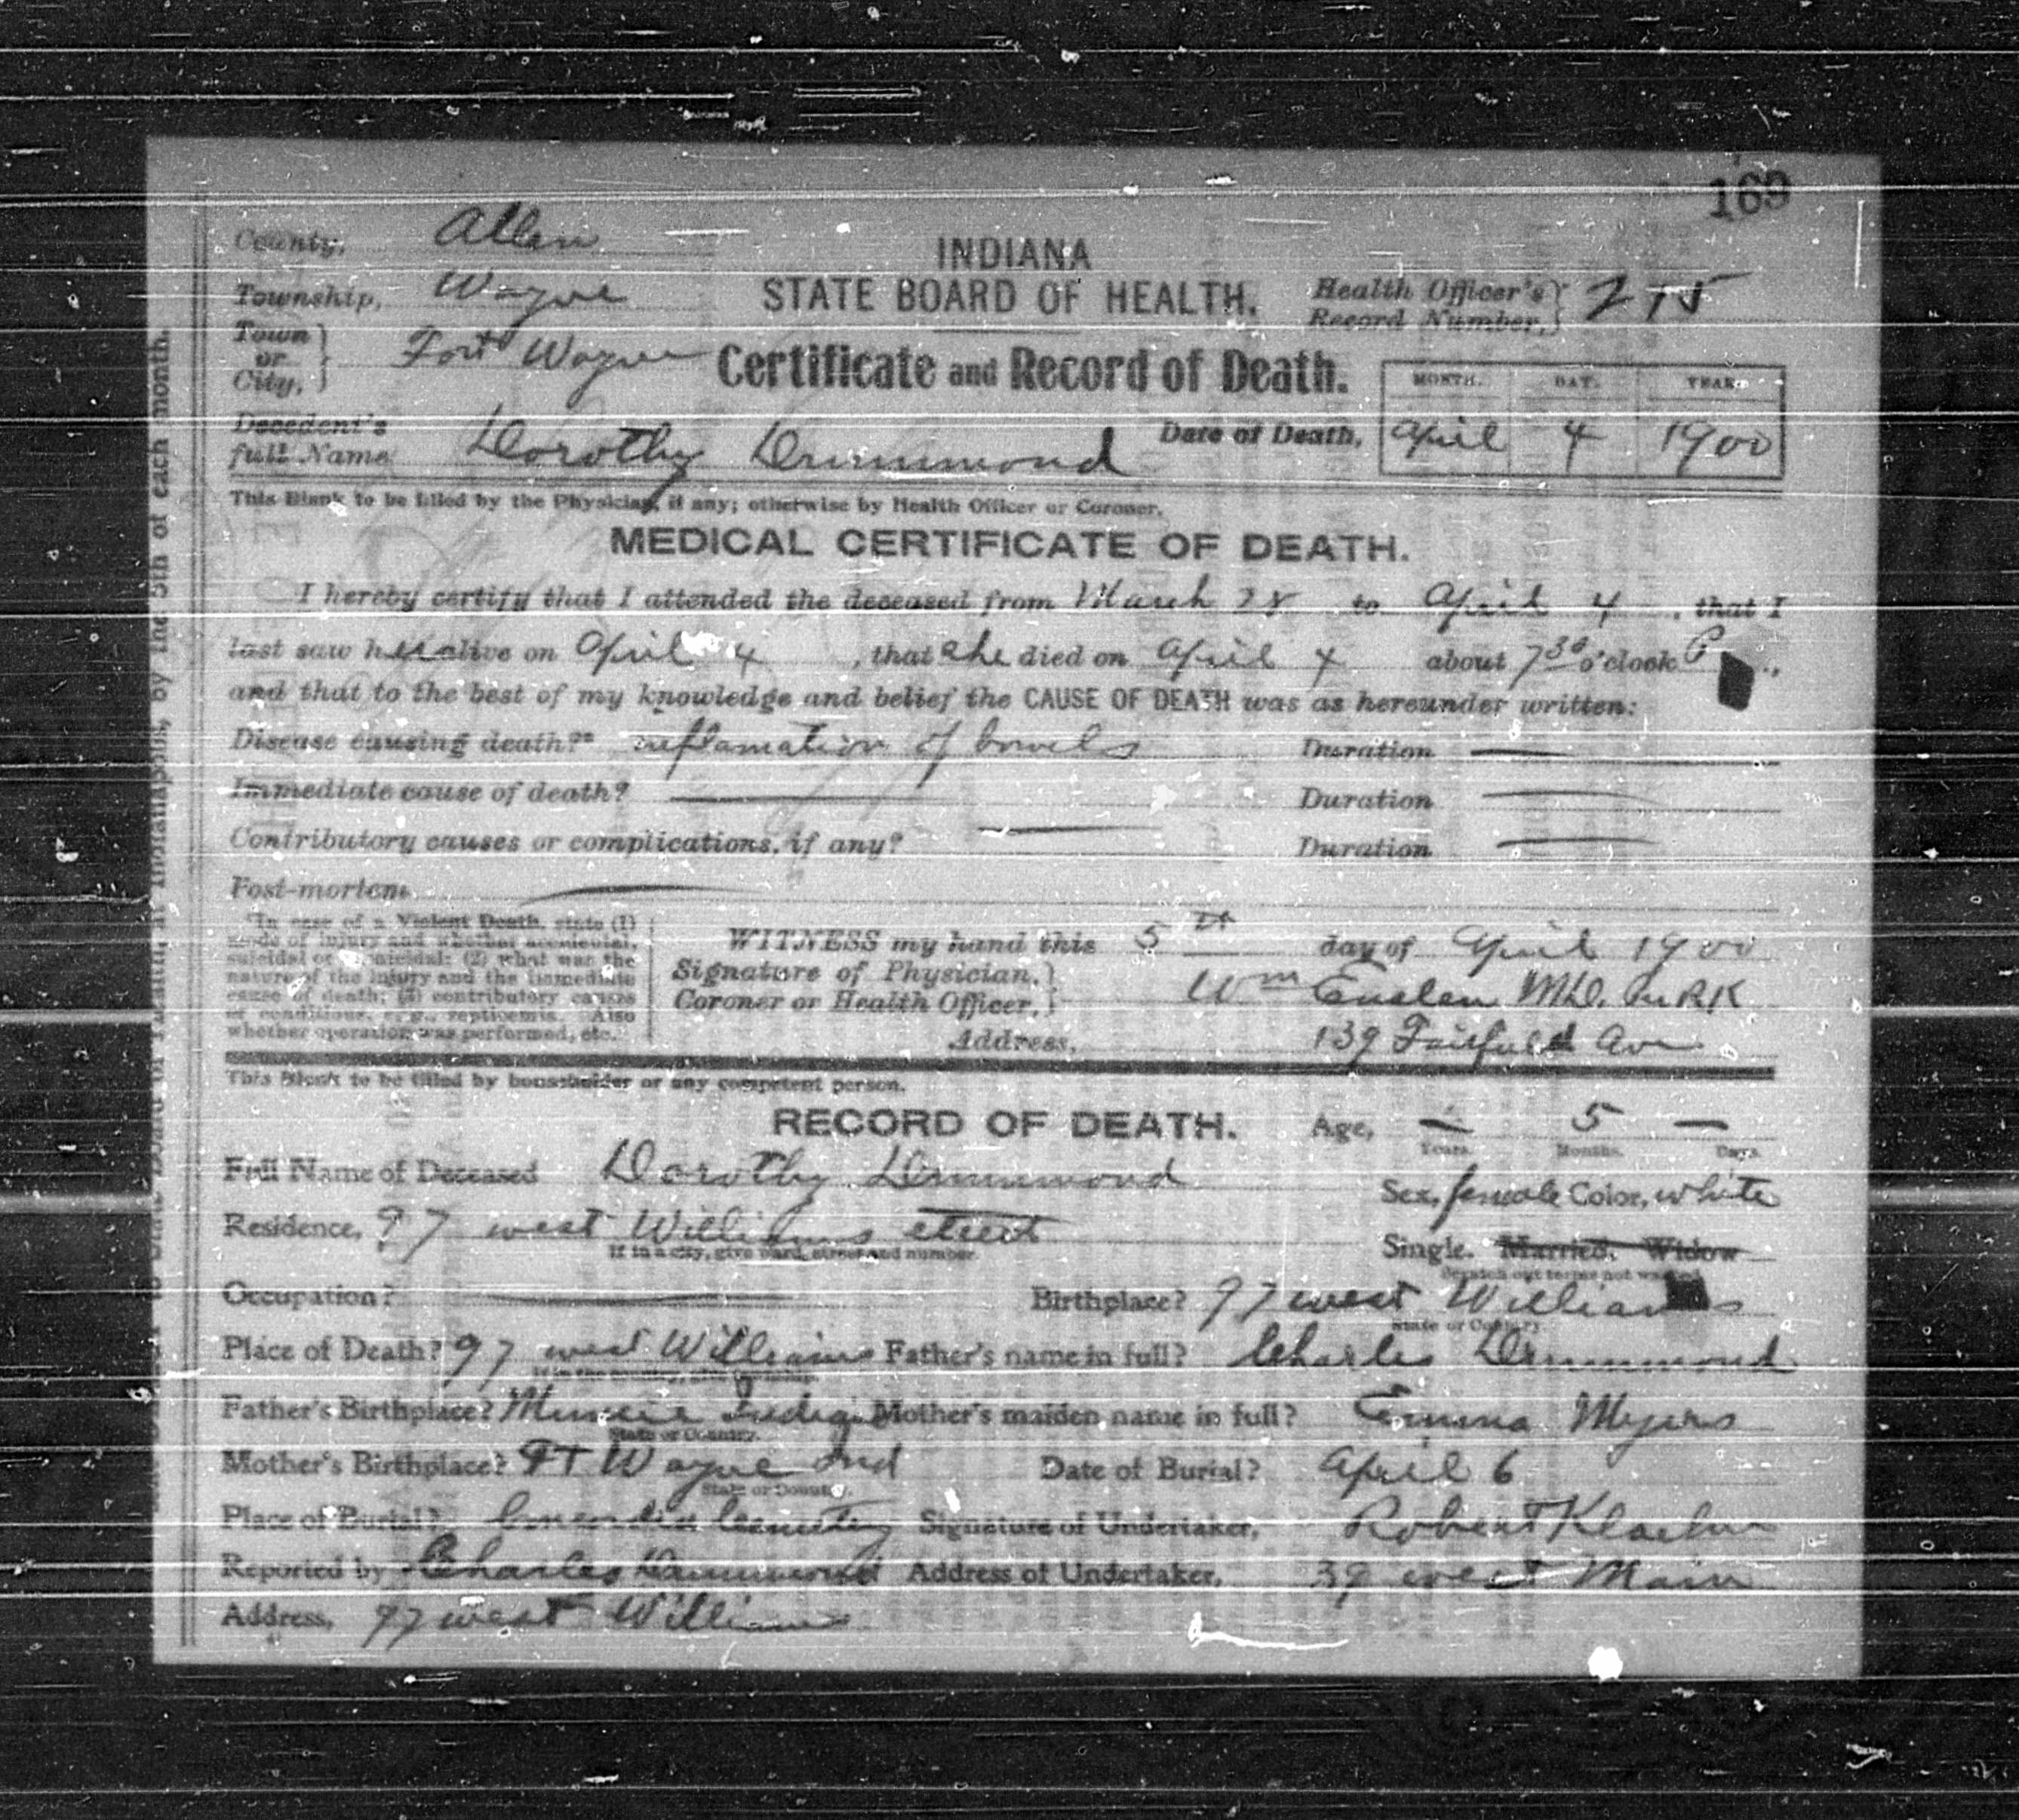 169
County, Allen
Township, Wayne
Town or City, } Fort Wayne
INDIANA
STATE BOARD OF HEALTH.
Certificate and Record of Death.
Health Officer's Record Number, } 215
Decedent's full Name Dorothy Drummond
Date of Death,
MONTH. DAY. YEAR.
April 4 1900
This Blank to be filled by the Physician, if any; otherwise by Health Officer or Coroner.
MEDICAL CERTIFICATE OF DEATH.
I hereby certify that I attended the deceased from March 28 to April 4, that I
last saw her alive on April 4, that she died on April 4 about 7 30 o'clock P ,
and that to the best of my knowledge and belief the CAUSE OF DEATH was as hereunder written:
Disease causing death?* inflamation of bowels Duration —
Immediate cause of death? — Duration —
Contributory causes or complications, if any? — Duration —
Post-mortem —
*In case of a Violent Death, state (1)
mode of injury and whether accidental,
suicidal or homicidal; (2) what was the
nature of the injury and the immediate
cause of death; (3) contributory causes
or conditions, e. g., septicemia. Also
whether operation was performed, etc.
WITNESS my hand this 5th day of April 1900
Signature of Physician, Coroner or Health Officer, } Wm Enslen M.D. Per RK
Address, 139 Fairfield Ave
This Blank to be filled by householder or any competent person.
RECORD OF DEATH.
Age, — Years. 5 Months. — Days.
Full Name of Deceased Dorothy Drummond
Sex, female Color, white
Residence, 97 west Williams street
If in a city, give ward, street and number.
Single. Married. Widow
Scratch out terms not wanted.
Occupation? —
Birthplace? 97 west Williams
State or Country.
Place of Death? 97 west Williams Father's name in full? Charles Drummond
Father's Birthplace? Muncie Indiana Mother's maiden name in full? Emma Myers
State or Country.
Mother's Birthplace? Ft Wayne Ind Date of Burial? April 6
State or Country.
Place of Burial? Concordia Cemetery Signature of Undertaker, Robert Klaehn
Reported by Charles Drummond Address of Undertaker, 39 west Main
Address, 97 west Williams
by the 5th of each month.